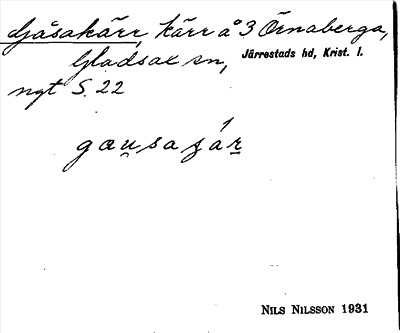 Gåsakärr, kärr å 3 Örnaberga,
Gladsax sn, Järrestads hd, Krist. l.
ngt S. 22
gæu̯sajár
NILS NILSSON 1931